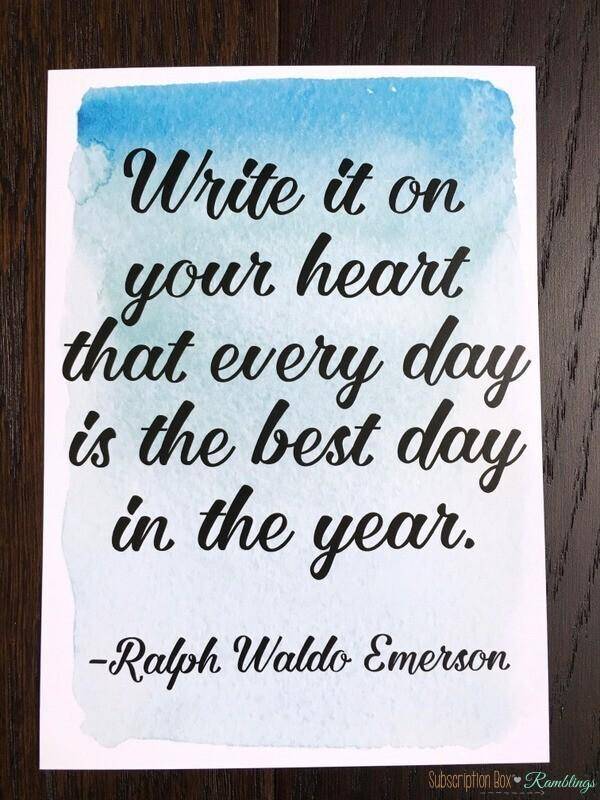 Write it on
your heart
that every day
is the best day
in the year.
-Ralph Waldo Emerson
Subscription Box Ramblings